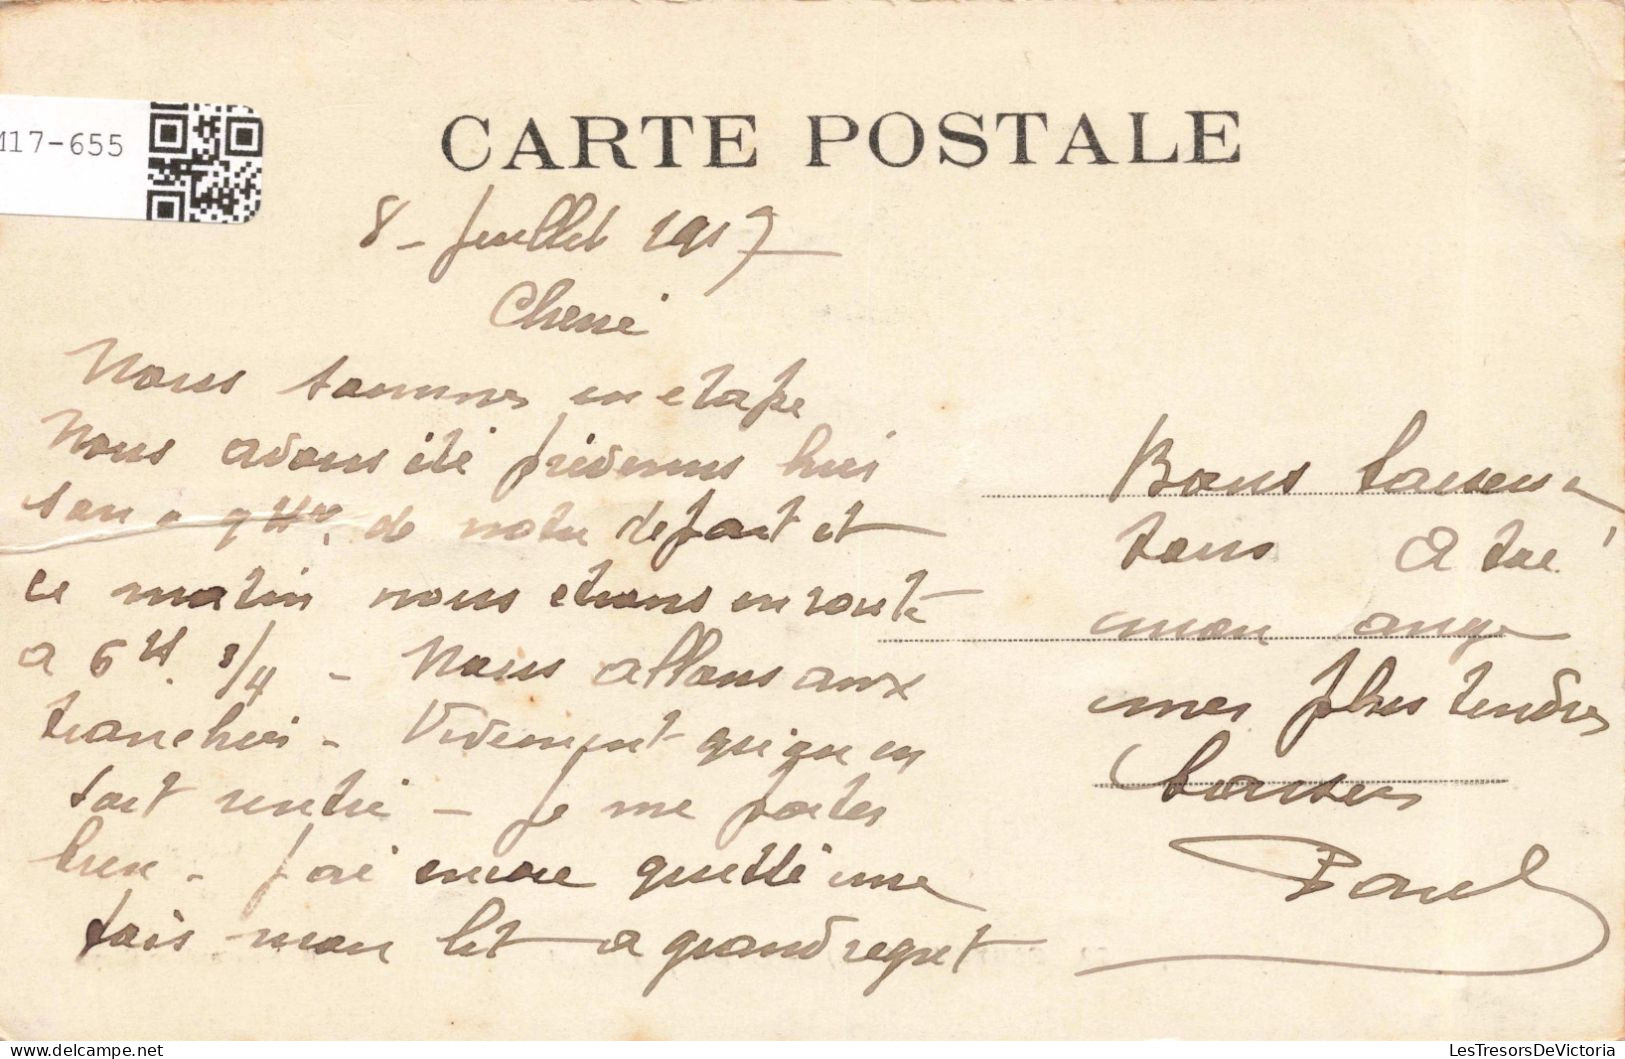 M17-655
CARTE POSTALE
8 - Juillet 1917
Cherie
Nous sommes en etape
Nous avons été prévenus hier
soir a 9H de notre depart et
ce matin nous etions en route
a 6H 3/4 - Nous allons aux
tranchées - Vivement qu'on en
soit rentré - Je me portes
bien - J'ai encore quitté une
fois mon lit a grand regret
Bons baisers a
tous A toi
mon ange
mes plus tendres
baisers
Paul
LesTresorsDeVictoria